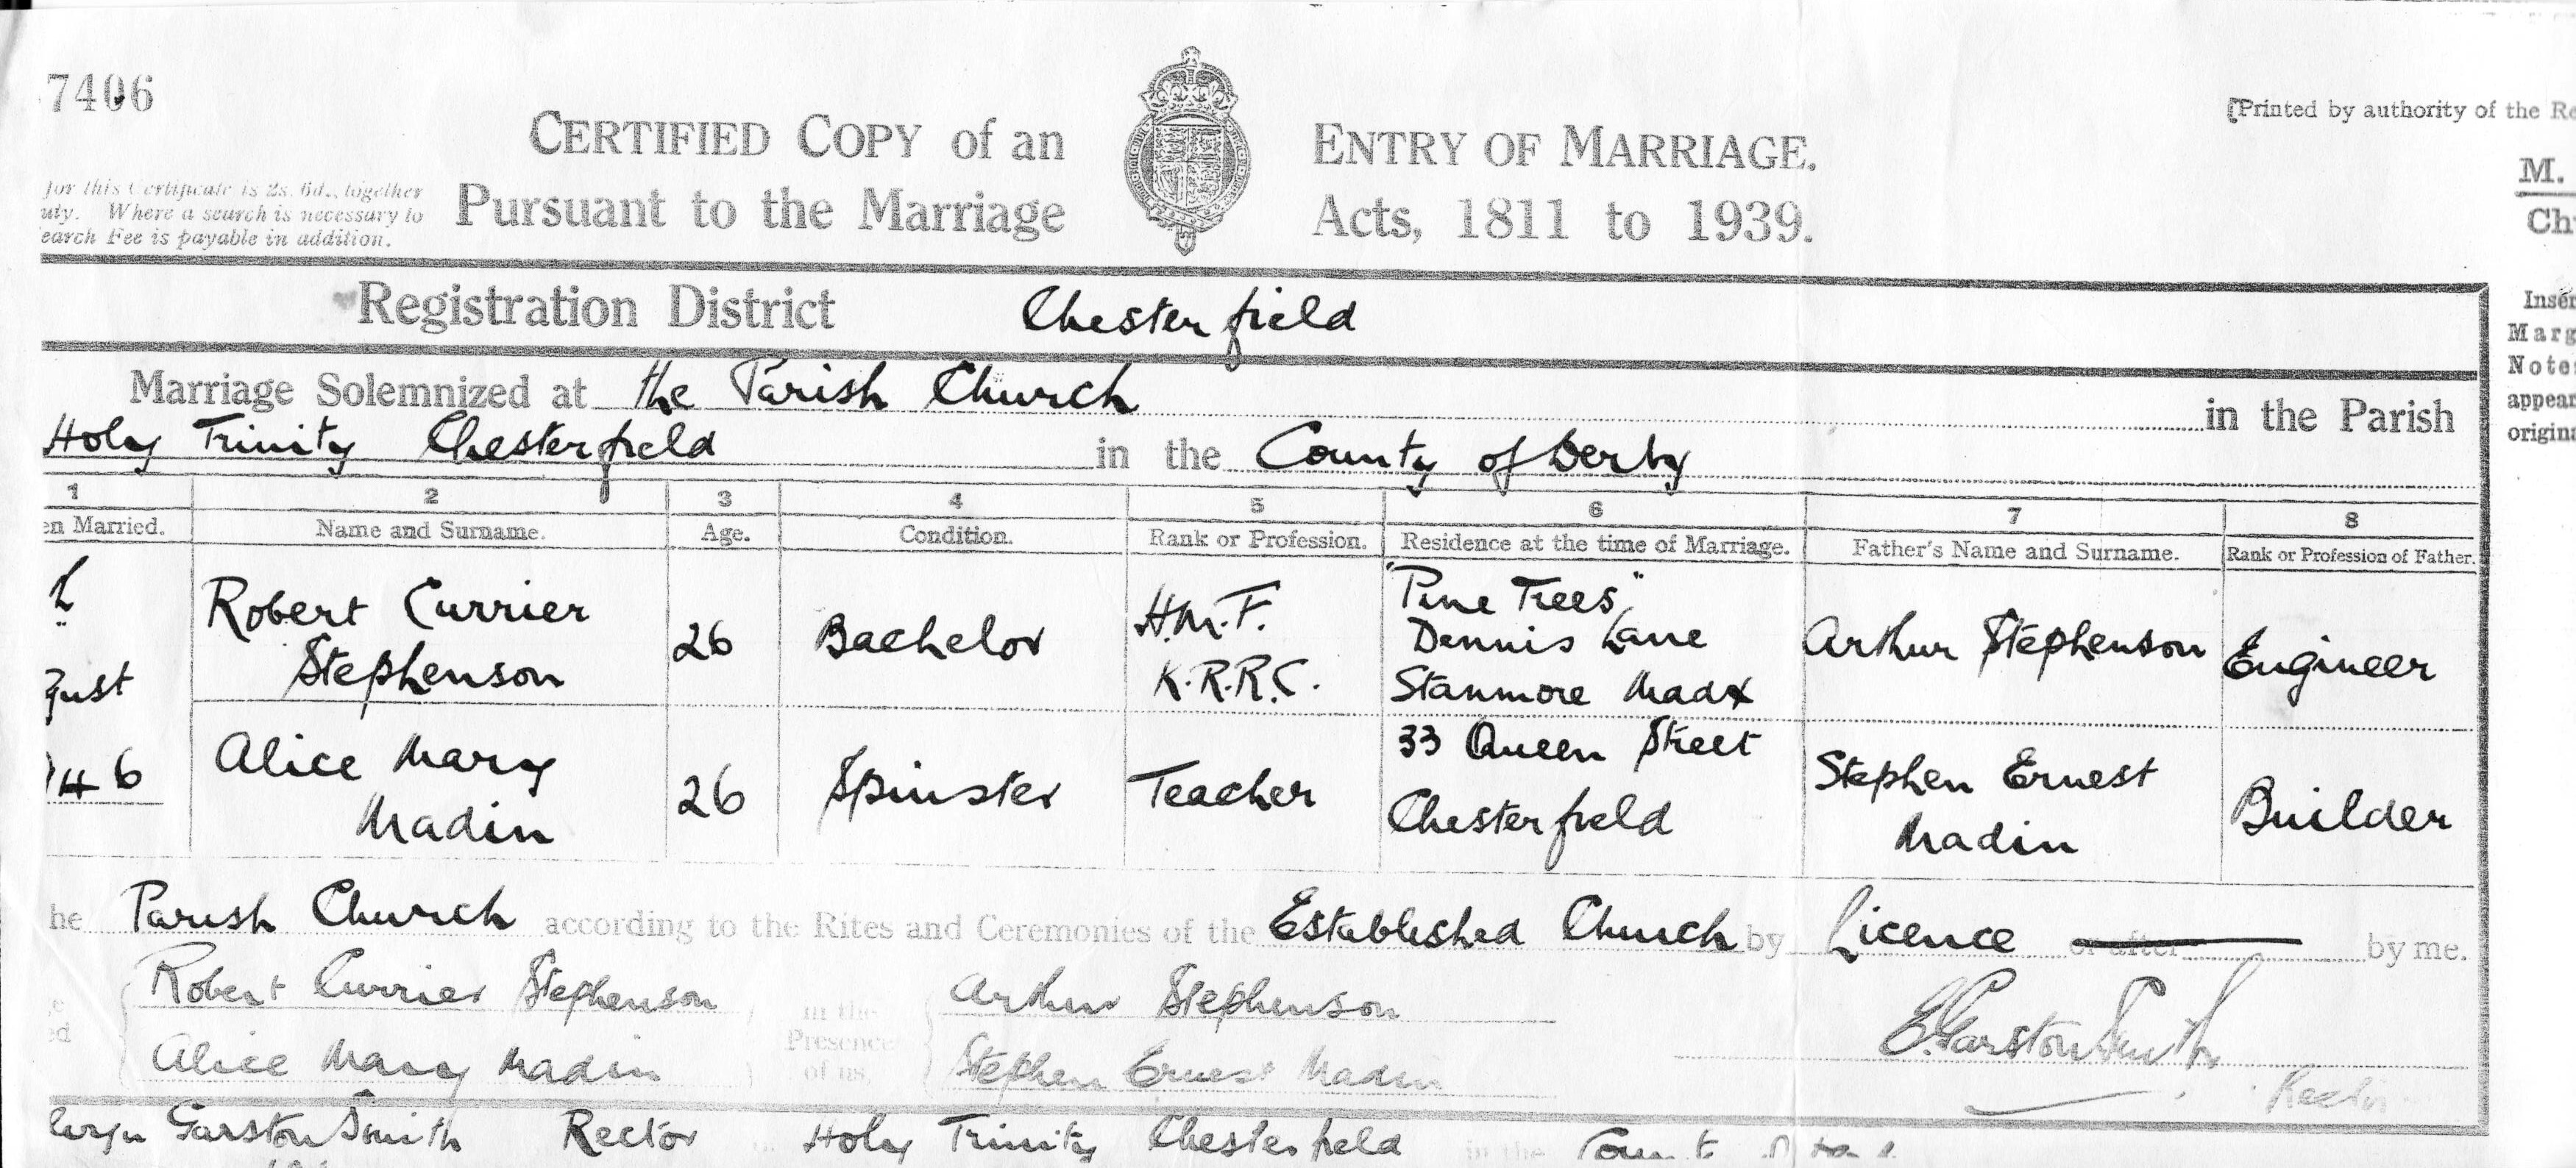 7406
[Printed by authority of the Re
CERTIFIED COPY of an ENTRY OF MARRIAGE.
Pursuant to the Marriage Acts, 1811 to 1939.
for this Certificate is 2s. 6d., together
uty. Where a search is necessary to
earch Fee is payable in addition.
M.
Registration District Chesterfield
Marriage Solemnized at the Parish Church in the Parish
Holy Trinity Chesterfield in the County of Derby
Marg
Note
appear
origina
1 2 3 4 5 6 7 8
en Married. Name and Surname. Age. Condition. Rank or Profession. Residence at the time of Marriage. Father's Name and Surname. Rank or Profession of Father.
h
gust
46
Robert Currier
Stephenson
26
Bachelor
H.M.F.
K.R.R.C.
"Pine Trees,"
Dennis Lane
Stanmore Madx
Arthur Stephenson
Engineer
Alice Mary
Madin
26
Spinster
Teacher
33 Queen Street
Chesterfield
Stephen Ernest
Madin
Builder
he Parish Church according to the Rites and Ceremonies of the Established Church by Licence or after by me.
Robert Currier Stephenson in the Arthur Stephenson
Presence
Alice Mary Madin of us, Stephen Ernest Madin
E. Garston Smith
Rector
Garston Smith Rector Holy Trinity Chesterfield in the